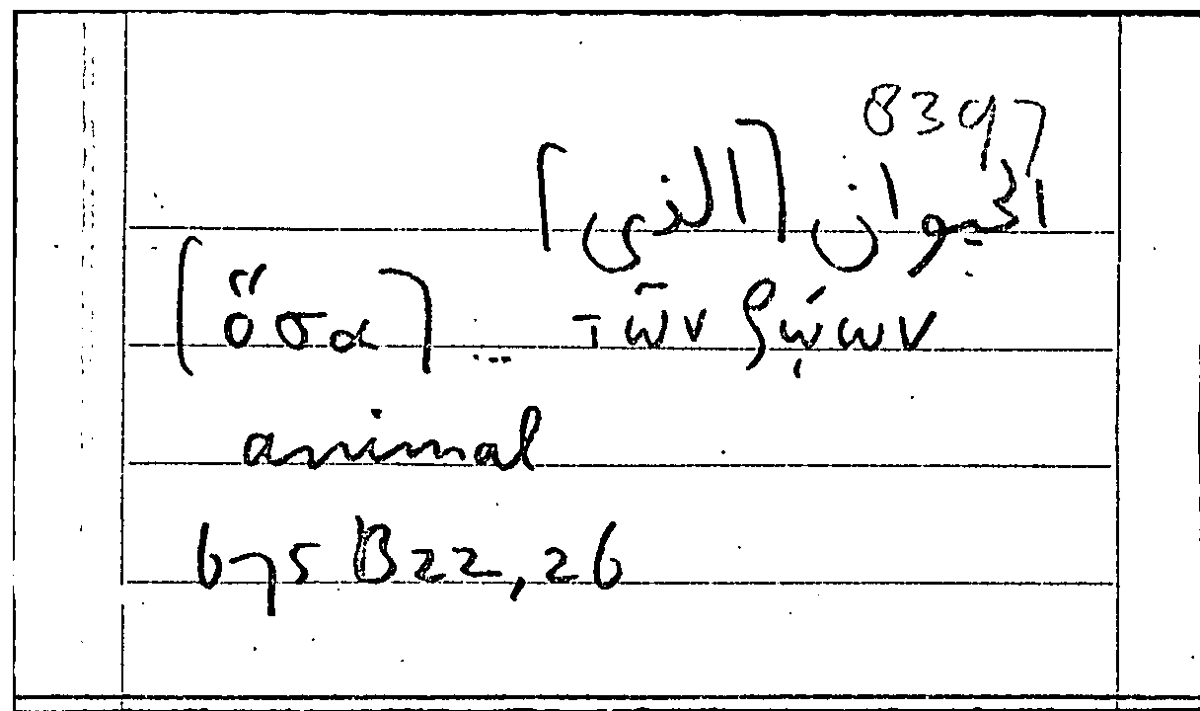 8397
الحيوان [الذى]
[ὅσα] ... τῶν ζῴων
animal
675 B22,26